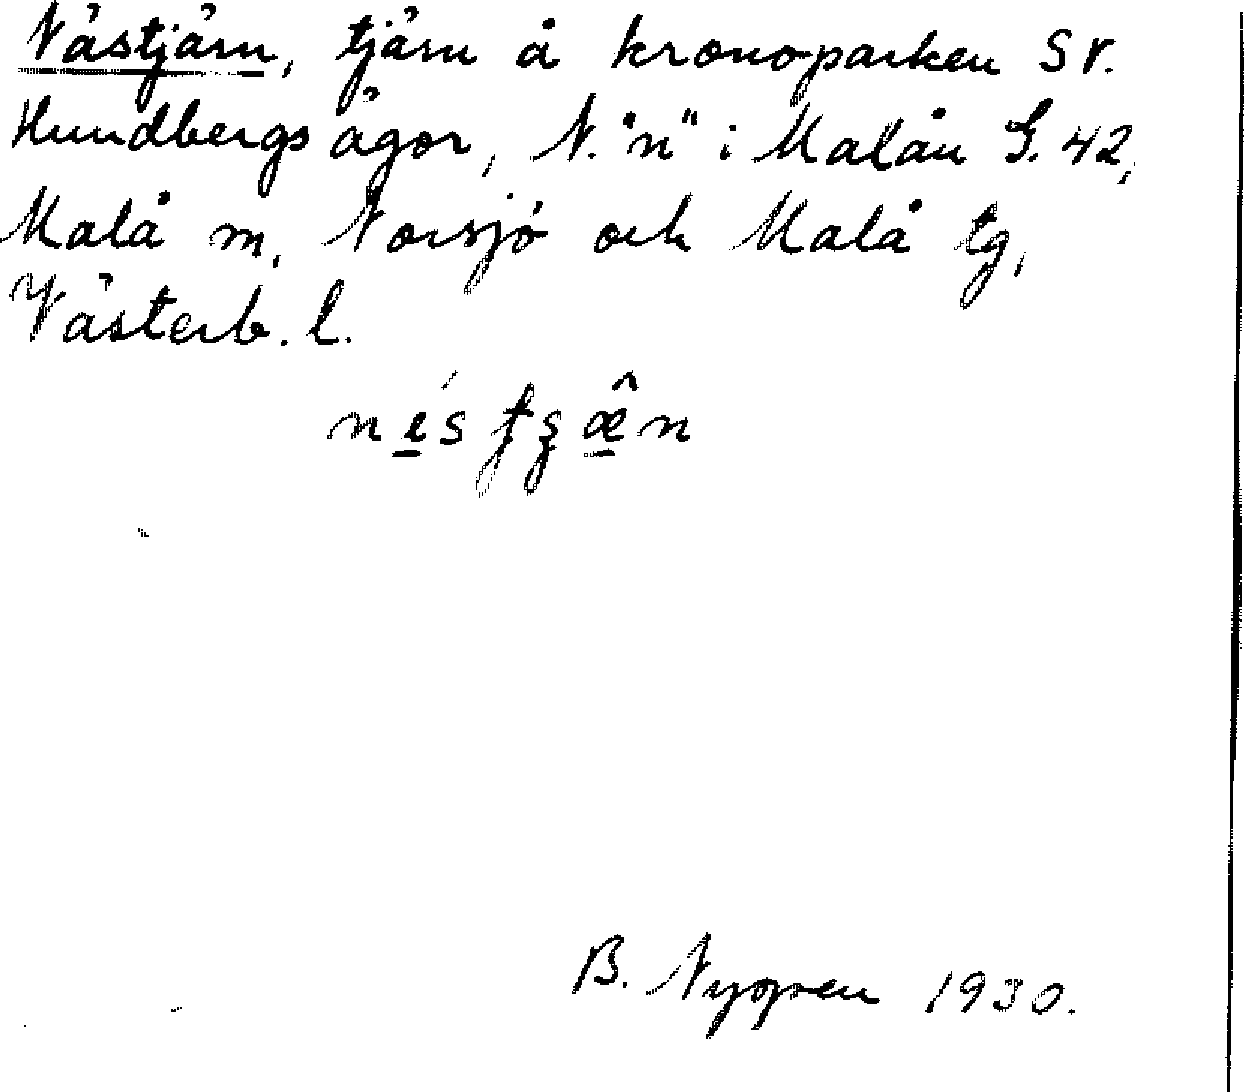 Nästjärn, tjärn å kronoparken SV.
Hundbergs ägor, N. "n" i Malån G. 42,
Malå m, Norsjö och Malå tg,
Västerb. l.
B. Nygren 1930.